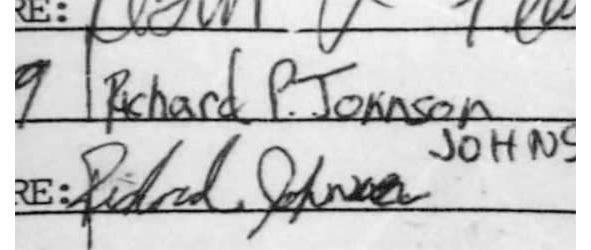 RE:
9 Richard P. Johnson
JOHNS
RE: Richard Johnson